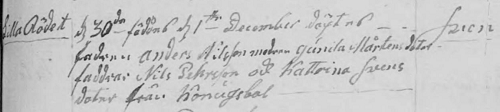 Lilla Rödet d 30de föddes d 1ste December döptes - - Swen
fadren anders Nilsson modren gunila Mårtens doter
faddrar Nils Pehrson och Kattrina Swens
doter från Kongsbol